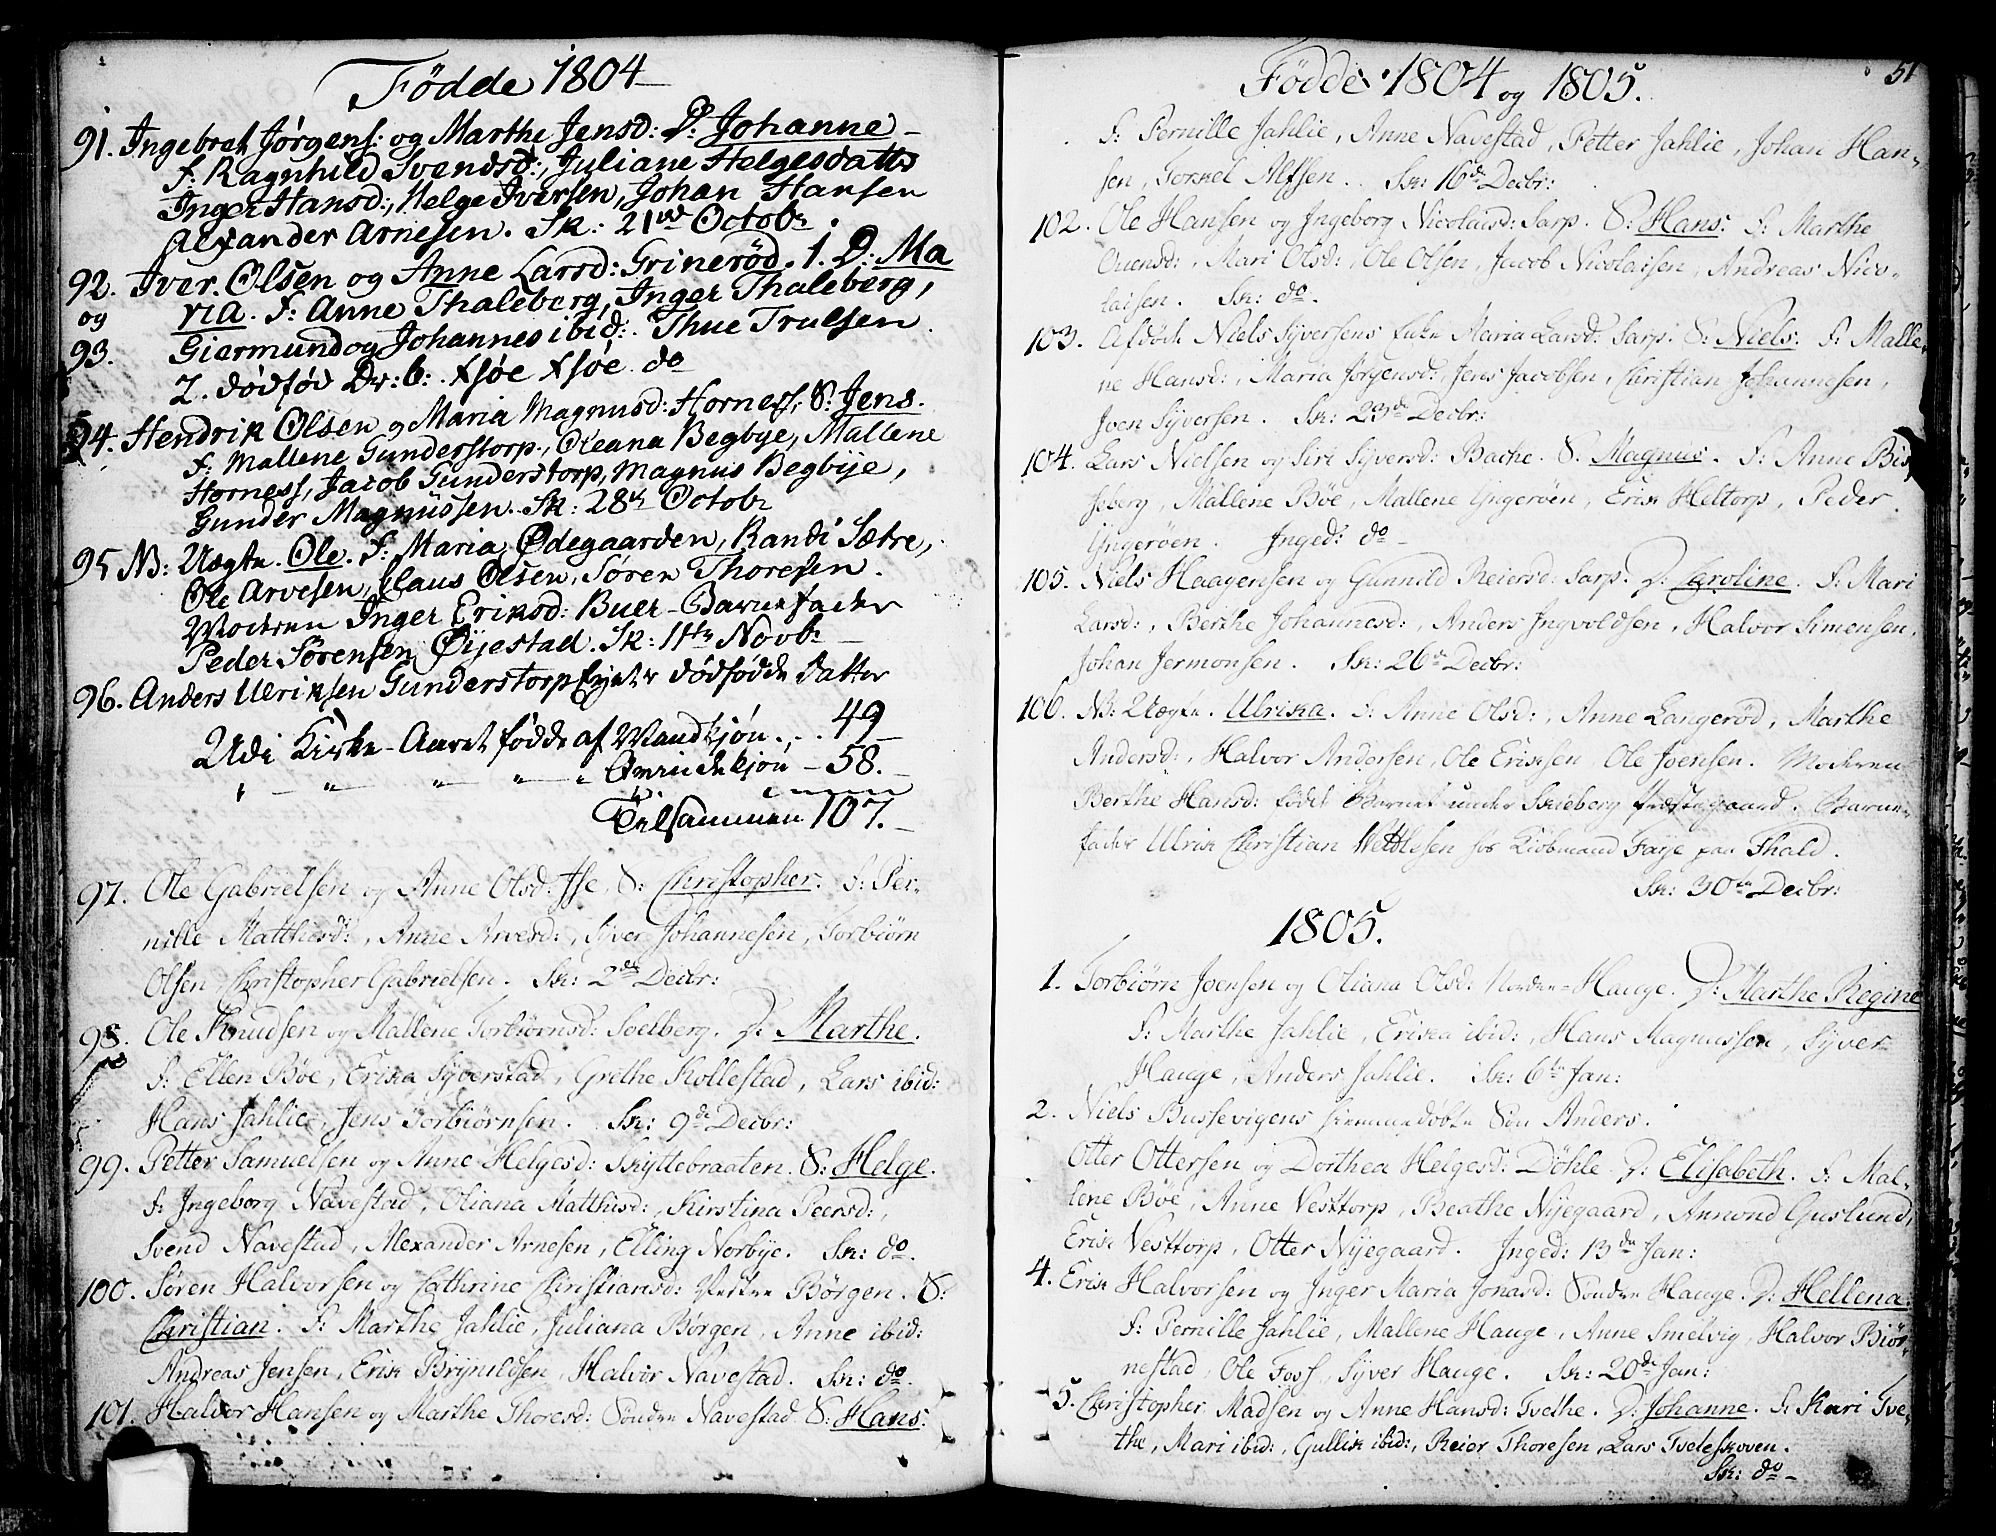 Fødde 1804
91. Ingebret Jørgens: og Marthe Jensd: D: Johanne
F: Ragnhild Svendsd:, Juliane Helgesdatter
Inger Hansd:, Helge Iversen, Johan Hansen
Alexander Arnesen. Sk: 21de Octobr
92. Iver Olsen og Anne Larsd: Grinerød. 1. D: Ma
og ria. F: Anne Thaleberg, Inger Thaleberg,
93. Giermund og Johannes ibid:. Thue Truesen
2. dødfød Dr: b: do
94. Hendrik Olsen og Maria Magnusd: Horness, S: Jens.
F: Mallene Gunderstorp, Oleana Begbye, Mallene
Horness, Jacob Gunderstorp, Magnus Begbije,
Gunder Magnussen. Sk: 28de Octobr
95 NB: Uægte. Ole. F: Maria Ødegaarden, Randi Sætre,
Ole Arvesen, Claus Olsen, Søren Thoresen.
Modren Inger Eriksd: Buer - Barnefader
Peder Sørensen Øijestad. Sk: 11te Novbr
96. Anders Ulriksen Gunderstorp dødfødde datter
Udi Kirke-Aaret fødde af Mandkjøn . . 49
" " " " Qvindekjøn - 58.
Tilsammen 107.
97. Ole Gabrielsen og Anne Olsd: Ise, S: Christopher. F: Per-
nille Matthisd:, Anne Arvesd:, Syver Johannesen, Torbiørn
Olsen, Christopher Gabrielsen. Sk: 2de Decbr:
98. Ole Knudsen og Mallene Torbiørnsd: Soelberg. D: Marthe.
F: Ellen Bøe, Erika Syverstad, Grethe Kollestad, Lars ibid:
Hans Jahlie, Jens Torbiørnsen. Sk: 9de Decbr:
99. Petter Samuelsen og Anne Helgesd: Skyttebraaten. S: Helge.
F: Ingeborg Navestad, Oliana Matthisd:, Kirstina Peersd:,
Svend Navestad, Alexander Arnesen, Elling Norbye. Sk: do.
100. Søren Halvorsen og Cathrine Christiansd: Vestre Børgen. S:
Christian. F: Marthe Jahlie, Juliana Børgen, Anne ibid:
Andreas Jensen, Erik Brynildsen, Halvor Navestad. Sk: do.
101. Halvor Hansen og Marthe Thoresd: Søndre Navestad. S: Hans.
51
Fødde 1804 og 1805.
F: Pernille Jahlie, Anne Navestad, Petter Jahlie, Johan Han-
sen, Torkel Alfsen. Sk: 16de Decbr:
102. Ole Hansen og Ingeborg Nicolaisd: Sarp. S: Hans: F: Marthe
Ouensd:, Mari Olsd:, Ole Olsen, Jacob Nicolaisen, Andreas Nico-
laisen. Sk: do.
103. Afdøde Niels Syversens Enke Maria Larsd: Sarp. S: Niels. F: Malle-
ne Hansd:, Maria Jørgensd:, Jens Jacobsen, Christian Johannesen,
Joen Syversen. Sk: 23de Decbr:
104. Lars Nielsen og Siri Syversd: Bache. S: Magnus. F: Anne Bis-
seberg, Mallene Bøe, Mallene Yngerøen, Erik Heltorp, Peder
Yngerøen. Inged: do -
105. Niels Haagensen og Gunnild Reiersd: Sarp. D: Caroline. F: Mari
Larsd:, Berthe Johannesd:, Anders Ingvoldsen, Halvor Simensen,
Johan Jermonsen. Sk: 26de Decbr:
106. NB: Uægte. Ulrika. F: Anne Olsd:, Anne Langerød, Marthe
Andersd:, Halvor Andersen, Ole Eriksen, Ole Joensen. Modren
Berthe Hansd: født Barnet under Skieberg Præstegaard. Barne-
fader Ulrik Christian Wettlesen hos Kiøbmand Faije paa Fhald.
Sk: 30te Decbr:
1805.
1. Torbiørn Joensen og Oliana Olsd: Nordre-Hauge. D: Marthe Regine
F: Marthe Jahlie, Erika ibid:, Hans Magnussen, Syver
Hauge, Anders Jahlie. Sk: 6te Jan:
2. Niels Bussevigens hiemmedøbte Søn Anders.
Otter Ottersen og Dorthea Helgesd: Döhle. D: Elisabeth. F: Mal-
lene Bøe, Anne Vesttorp, Beathe Nyegaard, Amond Guslund,
Erik Vesttorp, Otter Nyegaard. Inged: 13de Jan:
4. Erik Halvorsen og Inger Maria Jonasd: Søndre Hauge. D: Hellena.
F: Pernille Jahlie, Mallene Hauge, Anne Smelvig, Halvor Biør-
nestad, Ole Foss, Syver Hauge. Sk: 20de Jan:
5. Christopher Madsen og Anne Hansd: Tvethe. D: Johanne. F: Kari Tve-
the, Mari ibid:, Gullik ibid:, Reier Thoresen, Lars Tveteskoven.
Sk: do -